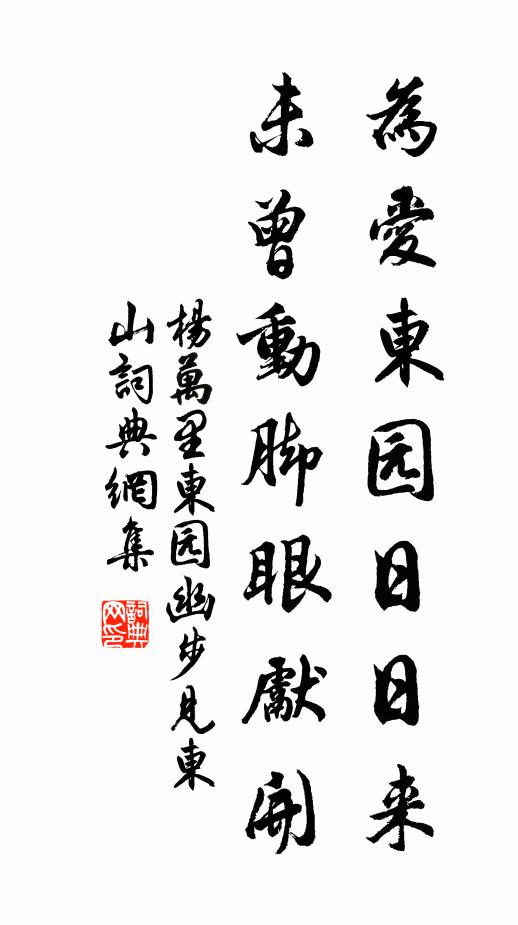 為愛東园日日来
未曾動脚眼獻開
楊萬里東园幽步見東
山詞典網集
詞典网印